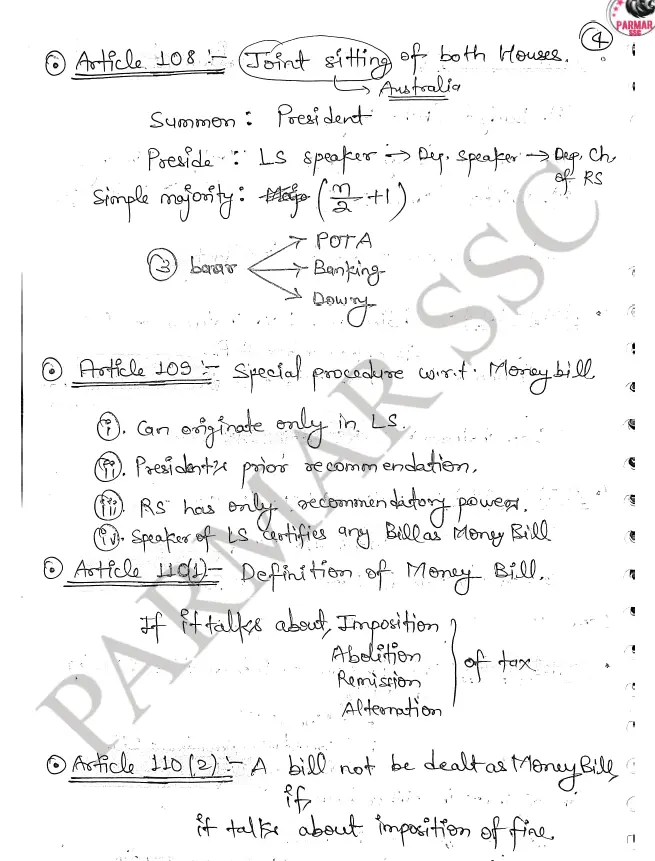 PARMAR
SSC
4
Article 108 :- Joint sitting of both Houses.
→ Australia
Summon : President
Preside : LS speaker → Dep. speaker → Dep. Ch. of RS
Simple majority : (n/2 + 1)
3
→ POTA
→ Banking
→ Dowry
Article 109 :- Special procedure w.r.t. Money bill
i. Can originate only in LS.
ii. President's prior recommendation.
iii. RS has only recommendatory powers.
iv. Speaker of LS certifies any Bill as Money Bill
Article 110(1) - Definition of Money Bill.
If it talks about, Imposition
Abolition
Remission
Alternation
of tax
Article 110(2) :- A bill not be dealt as Money Bill,
if,
it talks about imposition of fine.
PARMAR SSC